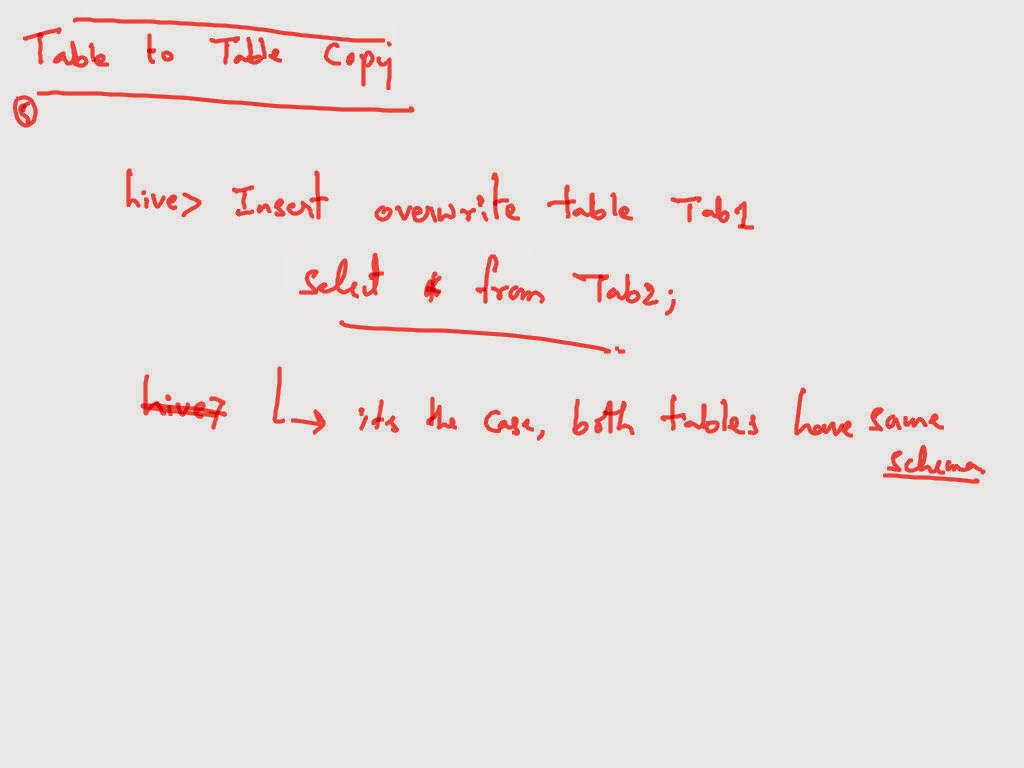 Table to Table Copy
5
hive> Insert overwrite table Tab1
select * from Tab2;
hive> its the case, both tables have same
schema